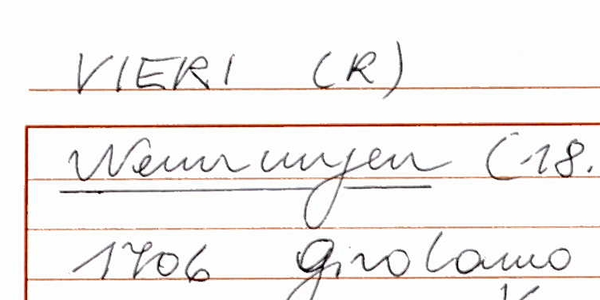 VIERI (R)
Nennungen (18.
1706 Girolamo